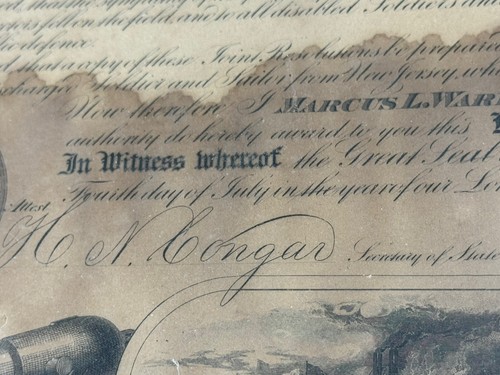 that the sympathy
orers fell on the field, and to all disabled Soldiers and
the defence.
d that a copy of these Joint Resolutions be prepared
charged Soldier and Sailor from New Jersey, who
Now therefore I MARCUS L. WAR
authority do hereby award to you this
In Witness whereof the Great Seal
Fourth day of July in the year of our Lo
Attest
H. N. Congar Secretary of State